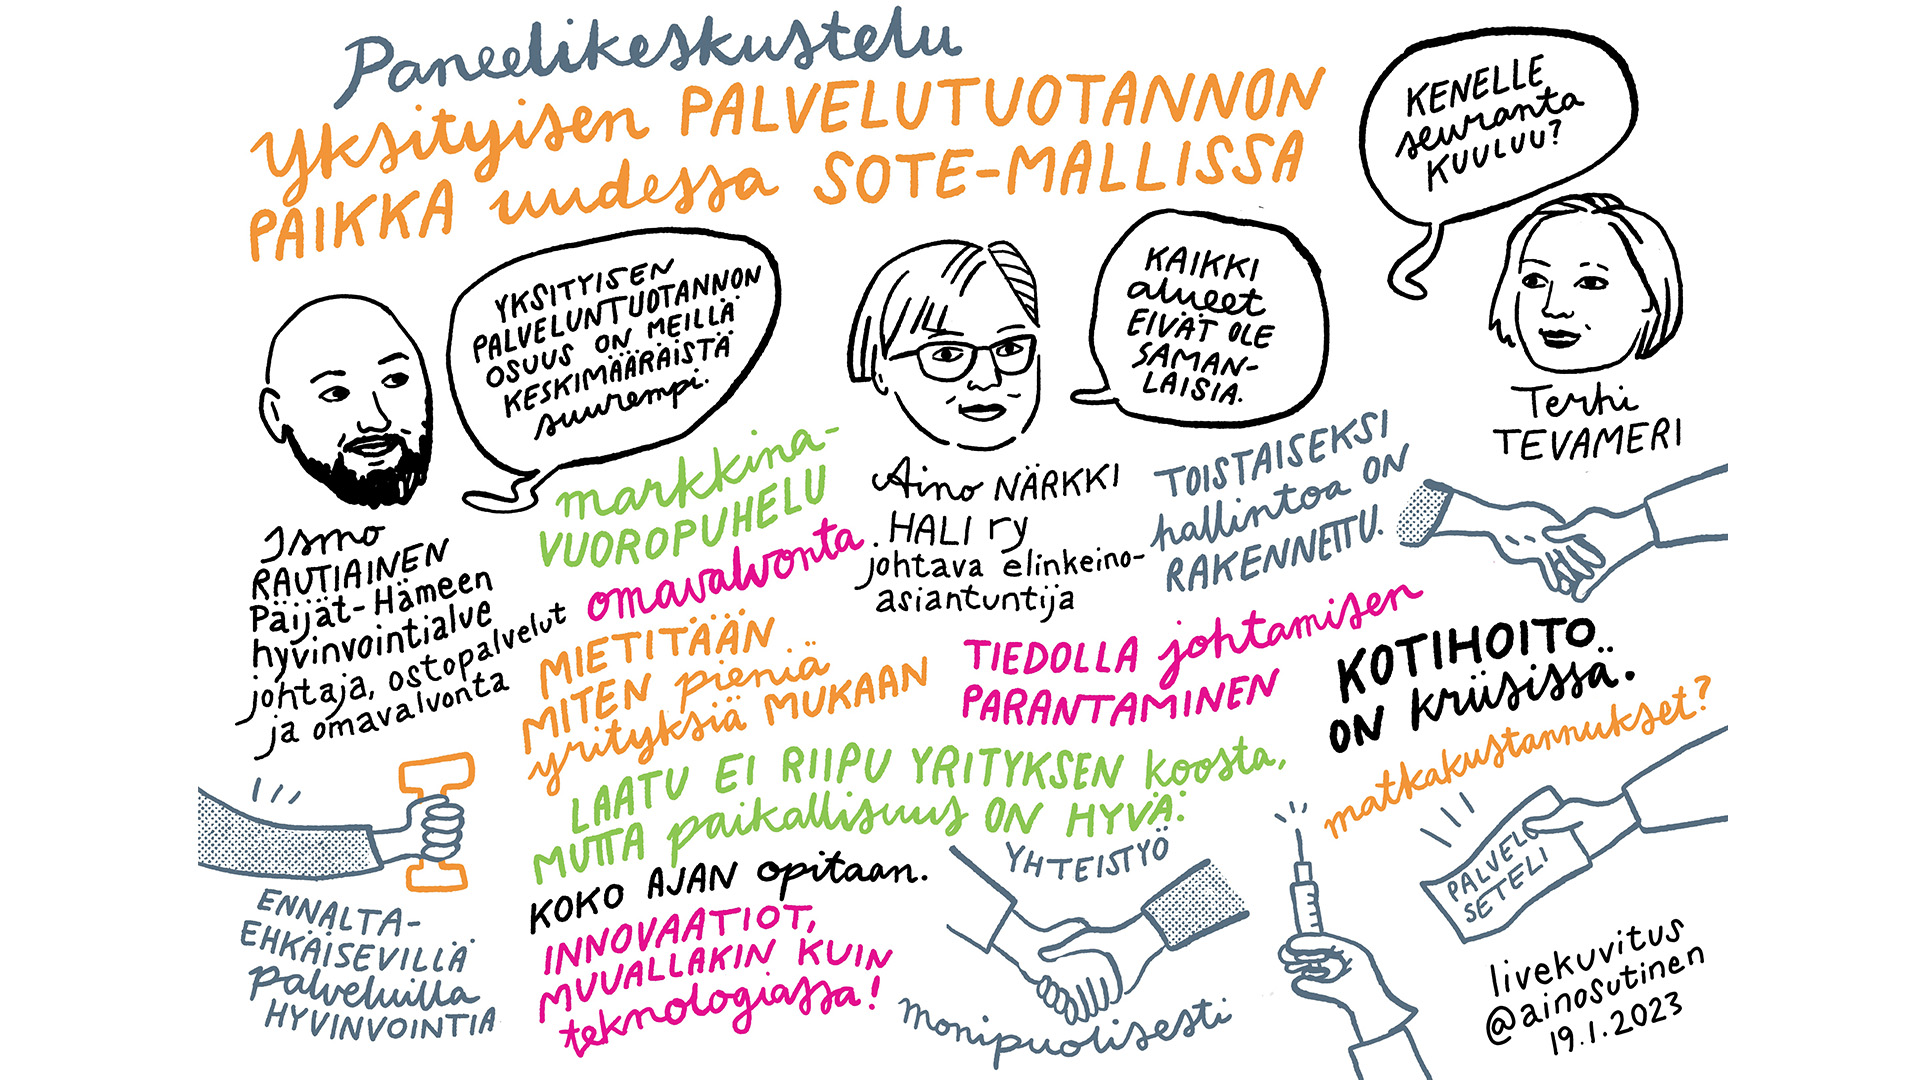 Paneelikeskustelu
Yksityisen PALVELUTUOTANNON
PAIKKA uudessa SOTE-MALLISSA
KENELLE
seuranta
KUULUU?
YKSITYISEN
PALVELUNTUOTANNON
OSUUS ON MEILLÄ
KESKIMÄÄRÄISTÄ
suurempi.
KAIKKI
alueet
EIVÄT OLE
SAMAN-
LAISIA.
Terhi
TEVAMERI
Ismo
RAUTIAINEN
Päijät-Hämeen
hyvinvointialue
johtaja, ostopalvelut
ja omavalvonta
markkina-
VUOROPUHELU
omavalvonta
Aino NÄRKKI
HALI ry
johtava elinkeino-
asiantuntija
TOISTAISEKSI
hallintoa ON
RAKENNETTU.
MIETITÄÄN
MITEN pieniä
yrityksiä MUKAAN
TIEDOLLA johtamisen
PARANTAMINEN
KOTIHOITO
ON kriisissä.
matkakustannukset?
LAATU EI RIIPU YRITYKSEN koosta,
MUTTA paikallisuus ON HYVÄ.
KOKO AJAN opitaan.
INNOVAATIOT,
MUUALLAKIN KUIN
teknologiassa!
ENNALTA-
EHKÄISEVILLÄ
palveluilla
HYVINVOINTIA
YHTEISTYÖ
monipuolisesti
PALVELU
SETELI
livekuvitus
@ainosutinen
19.1.2023